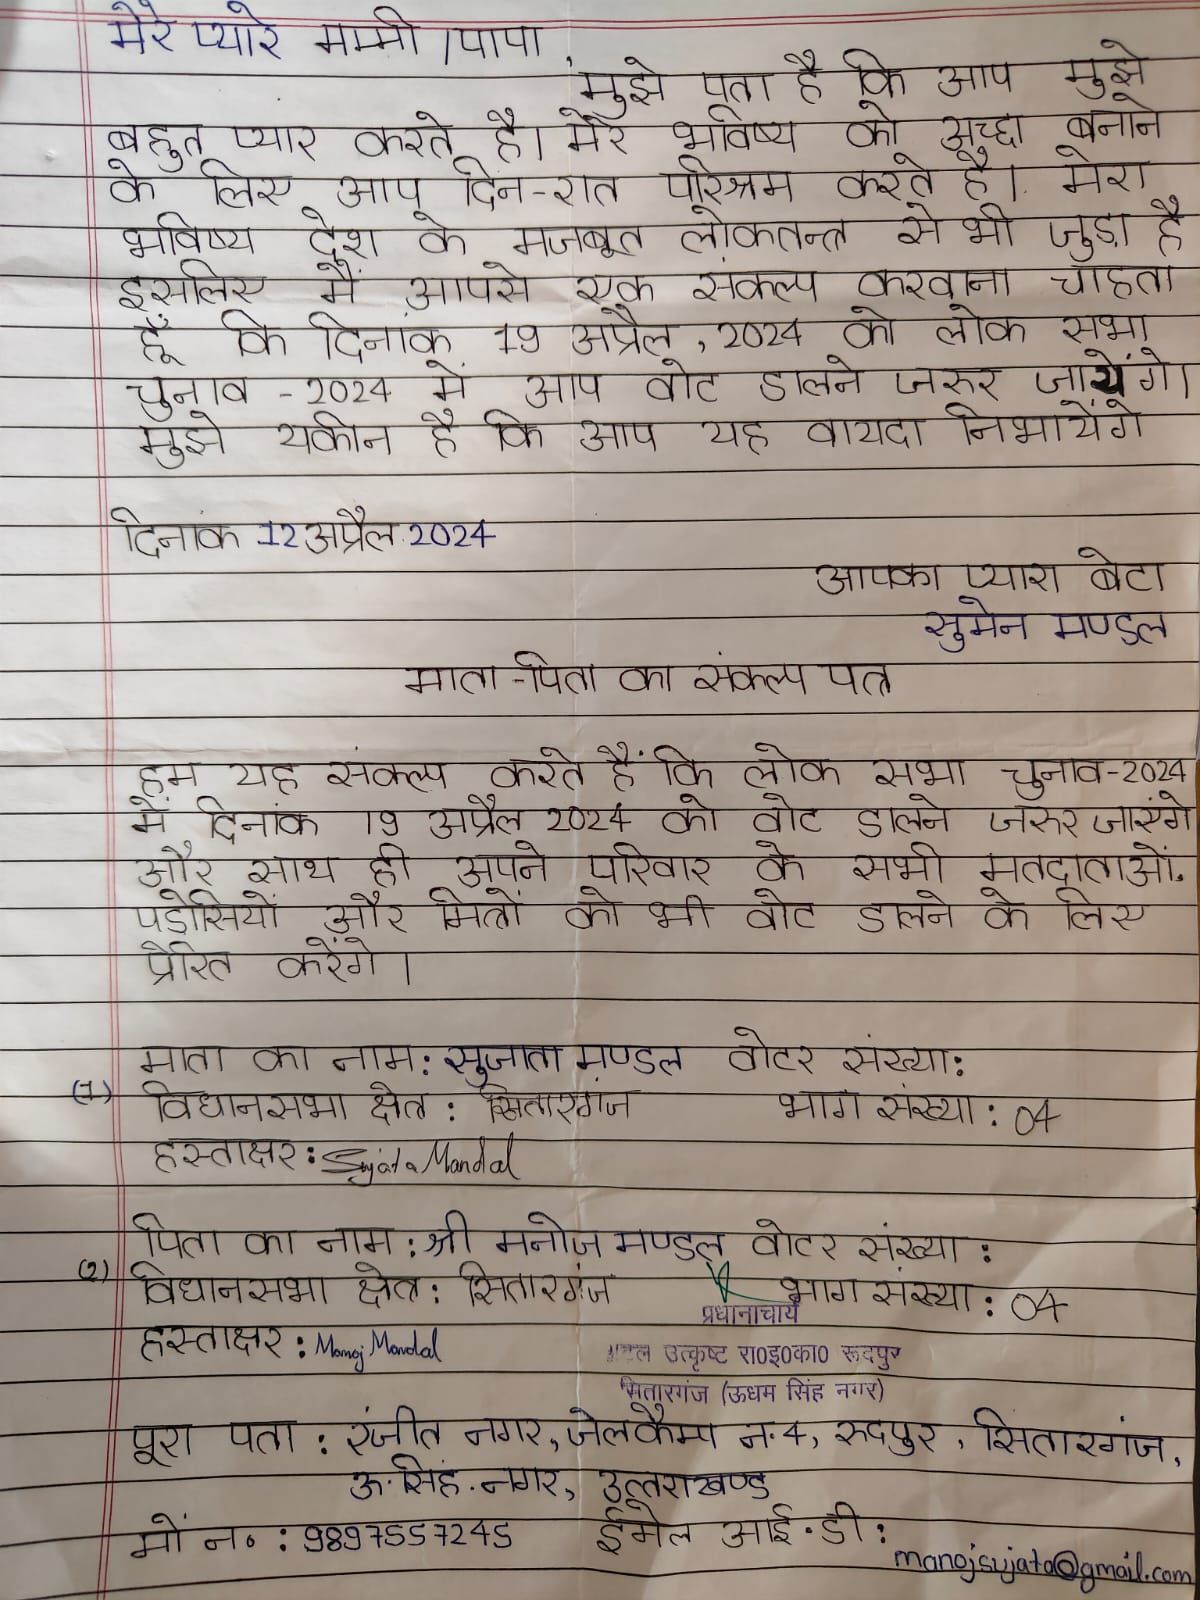 मेरे प्यारे मम्मी/पापा,
मुझे पता है कि आप मुझे
बहुत प्यार करते है। मेरे भविष्य को अच्छा बनाने
के लिए आप दिन-रात परिश्रम करते है। मेरा
भविष्य देश के मजबूत लोकतन्त्र से भी जुड़ा है
इसलिए मैं आपसे एक संकल्प करवाना चाहता
हूँ कि दिनांक 19 अप्रैल, 2024 को लोक सभा
चुनाव -2024 में आप वोट डालने जरुर जायेंगे।
मुझे यकीन है कि आप यह वायदा निभायेंगे
दिनांक 12 अप्रैल 2024
आपका प्यारा बेटा
सुमेन मण्डल
माता-पिता का संकल्प पत्र
हम यह संकल्प करते हैं कि लोक सभा चुनाव-2024
में दिनांक 19 अप्रैल 2024 को वोट डालने जरुर जाएंगे
और साथ ही अपने परिवार के सभी मतदाताओं,
पडोसियों और मित्रों को भी वोट डालने के लिए
प्रेरित करेंगे।
माता का नाम: सुजाता मण्डल वोटर संख्या:
(1) विधानसभा क्षेत्र: सितारगंज भाग संख्या: 04
हस्ताक्षर: Sujata Mandal
पिता का नाम: श्री मनोज मण्डल वोटर संख्या:
(2) विधानसभा क्षेत्र: सितारगंज भाग संख्या: 04
प्रधानाचार्य
हस्ताक्षर: Manoj Mandal
उत्कृष्ट रा0इ0का0 रूदपुर
सितारगंज (ऊधम सिंह नगर)
पूरा पता: रंजीत नगर, जेलकैम्प न.4, रुदपुर, सितारगंज,
ऊ.सिंह.नगर, उत्तराखण्ड
मों न०: 9897557245 ईमेल आई.डी:
manojsujata@gmail.com